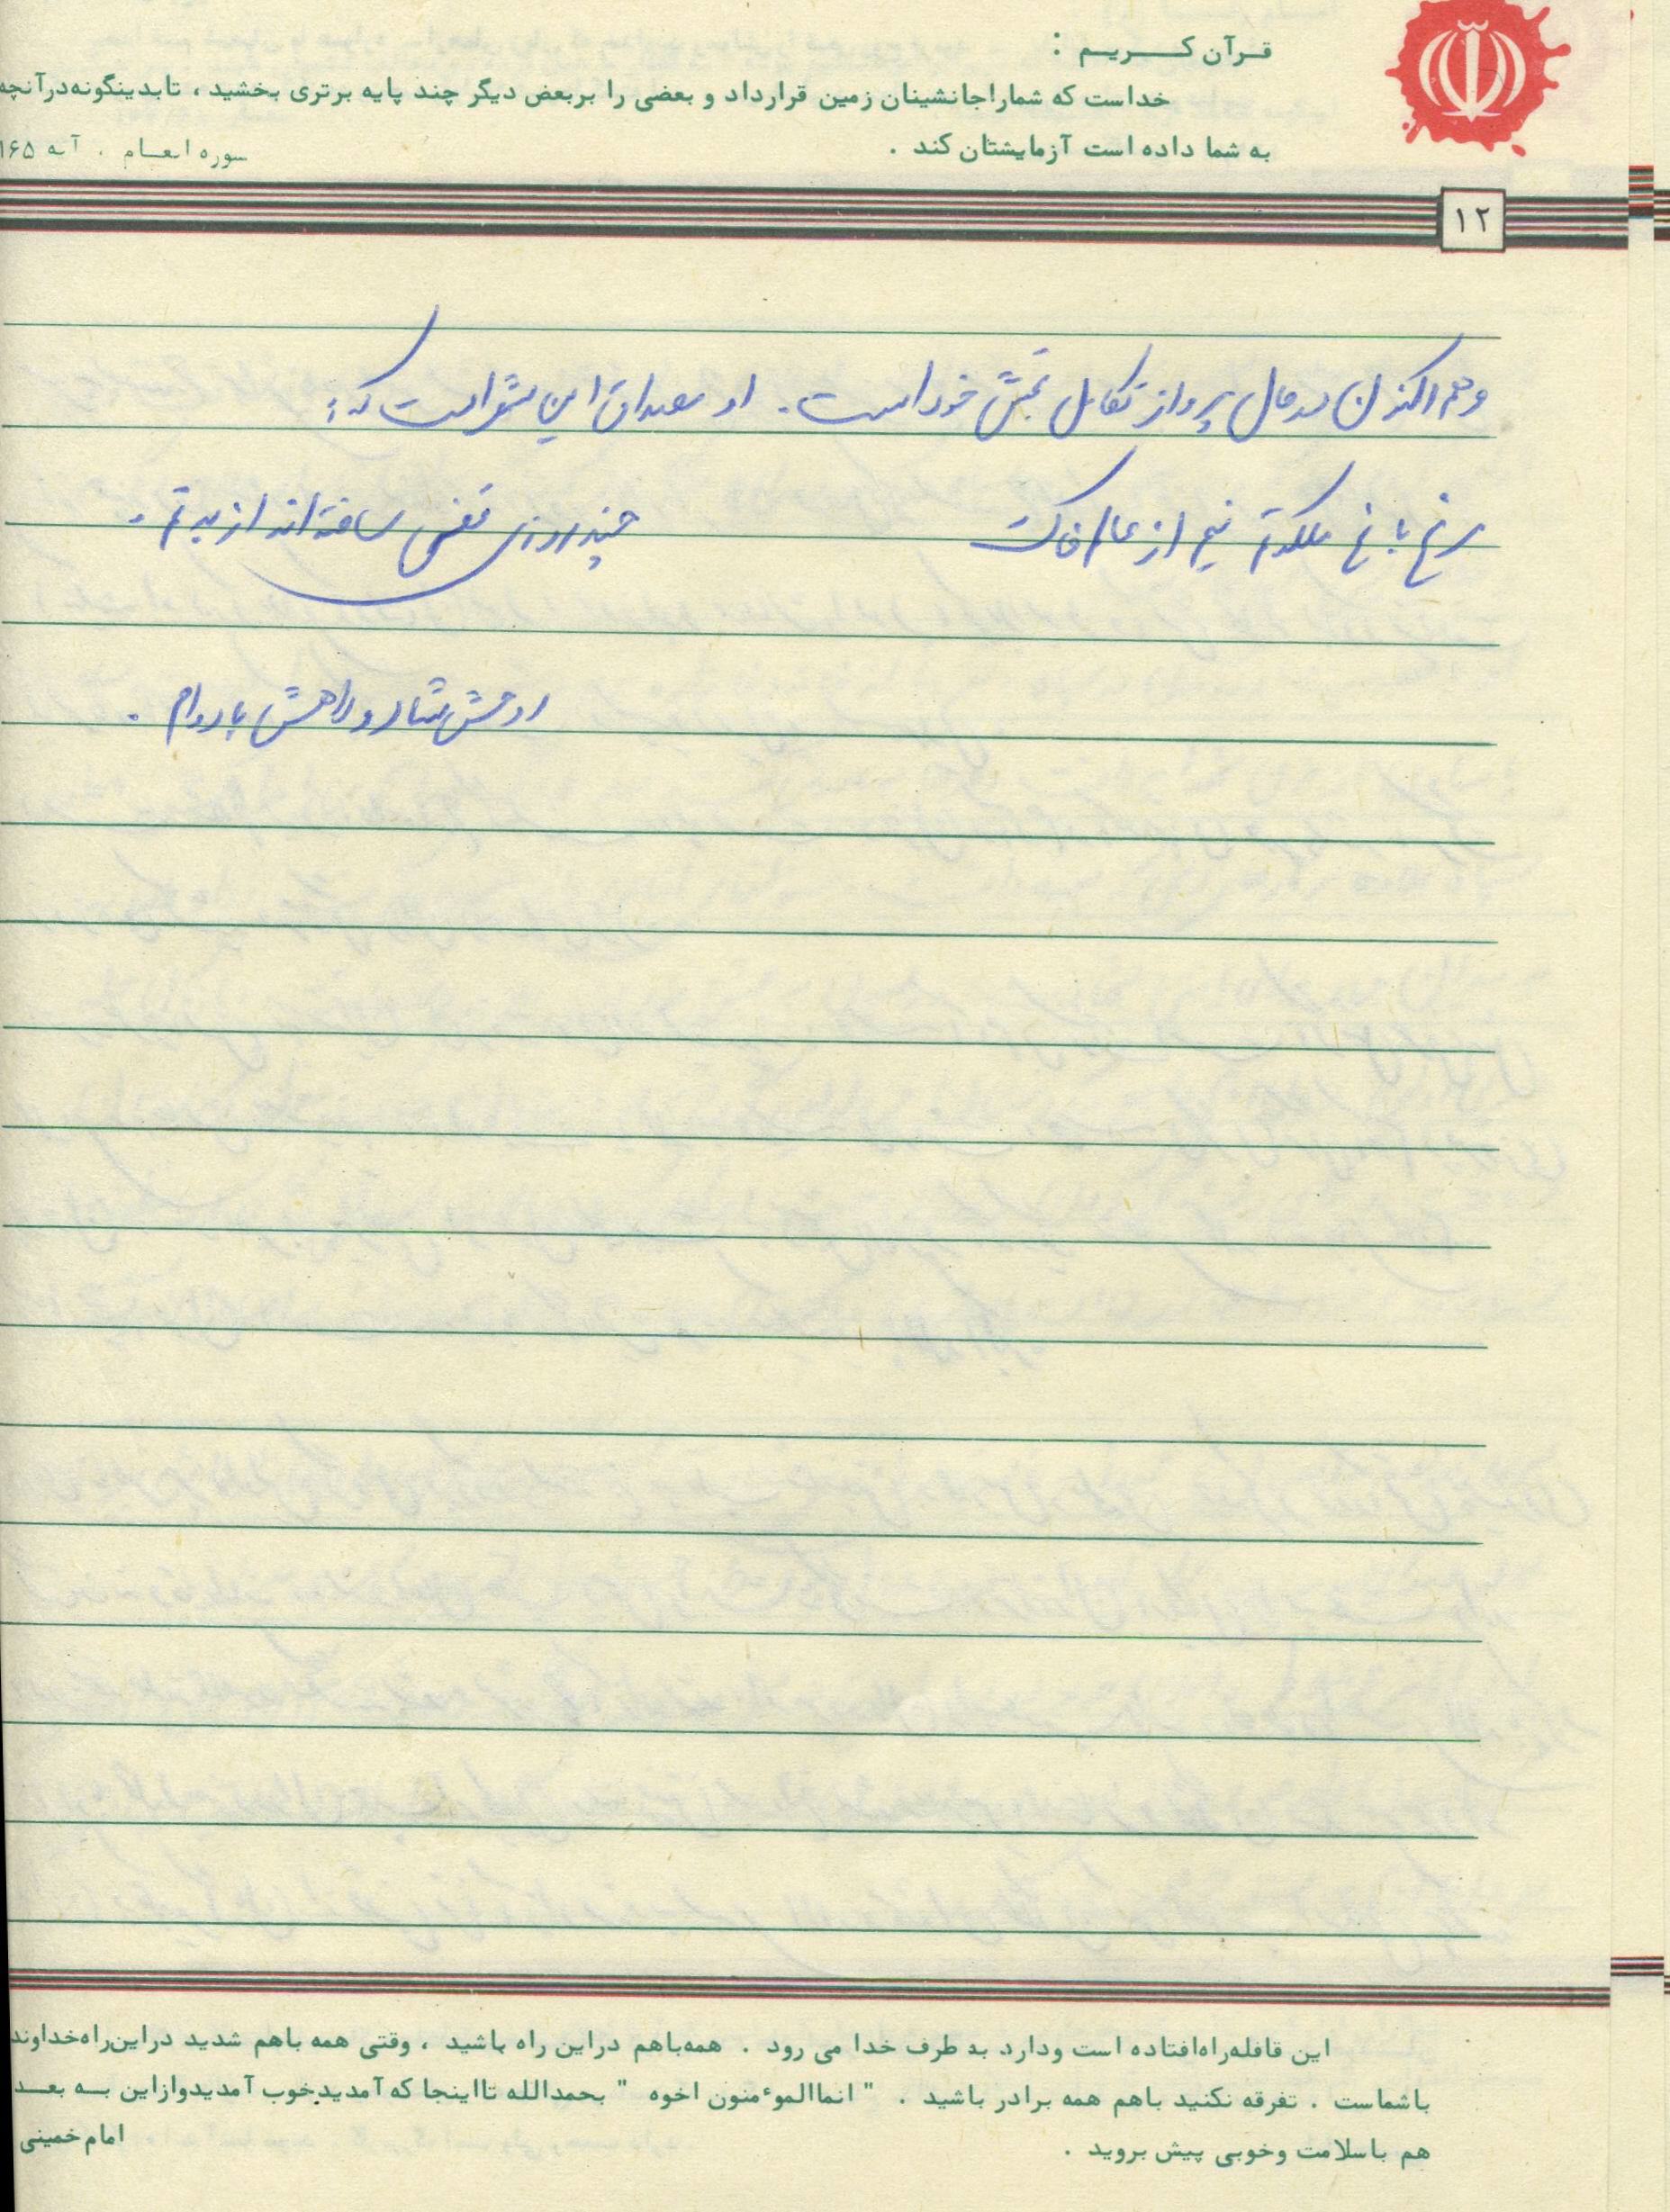 قرآن کریم :
خداست که شماراجانشینان زمین قرارداد و بعضی را بربعض دیگر چند پایه برتری بخشید ، تابدینگونه‌درآنچه
به شما داده است آزمایشتان کند .
سوره انعام . آیه ۱۶۵
۱۲
و هم اکنون در حال پرواز تکامل بخش خود است . او مصداق این شعر است که :
مرغ باغ ملکوتم نیم از عالم خاک
چند روزی قفسی ساخته‌اند از بدنم .
روحش شاد و راهش بادوام .
این قافله‌راه‌افتاده است ودارد به طرف خدا می رود . همه‌باهم دراین راه باشید ، وقتی همه باهم شدید دراین‌راه‌خداوند
باشماست . تفرقه نکنید باهم همه برادر باشید . " انماالموٴمنون اخوه " بحمدالله تااینجا که آمدیدخوب آمدیدوازاین به بعد
هم باسلامت وخوبی پیش بروید .
امام خمینی